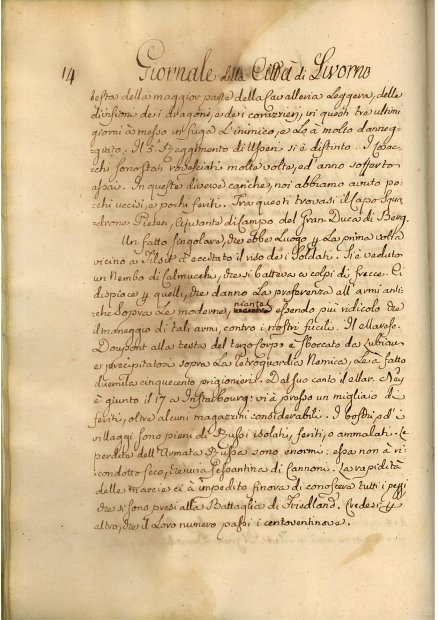 14 Giornale della Città di Livorno
testa della maggior parte della Cavalleria Leggera, delle
divisione de i dragoni, e de i corazzieri, in questi tre ultimi
giorni à messo in fuga L'inimico, e Lo à molto danneg=
giato. Il 5.° Reggimento di Usseri si è distinto. I Cosac=
chi sono stati rovesciati molte volte, ed' anno sofferto
assai. In queste diverse cariche, noi abbiamo avuto po=
chi uccisi, e pochi feriti. Tra questi trovasi il Capo Squa=
drone Pieten, Ajutante di Campo del Gran Duca di Berg.
Un fatto singolare, che ebbe Luogo p La prima volta
vicino a Tilsit à eccitato il riso de i Soldati. Si è veduto
un Nembo di Calmucchi, che si batteva a colpi di frecce. Ci
dispiace p quelli, che danno La preferenza all' armi anti=
che sopra Le moderne, essendo più ridicolo che
il maneggio di tali armi, contro i nostri fucili. Il Maresc.
Doupont alla testa del terzo Corpo è sboccato da
e precipitatosi sopra La Retroguardia Nemica, Le à fatto
duemila cinquecento prigionieri. Dal suo canto il Mar. Ney
è giunto il 17 a Instarbourg: vi à preso un migliaio di
feriti, oltre alcuni magazzini considerabili. I boschi, ed' i
villaggi sono pieni di Russi isolati, feriti, o ammalati. Le
perdite dell' Armata Russa sono enormi: essa non à ri=
condotto seco, che una sessantina di Cannoni. La rapidità
delle marcie ci à impedito finora di conoscere tutti i pezzi
che si sono presi alla Battaglia di Friedland. Credesi p
altro, che il Loro numero passi i centoventinove.